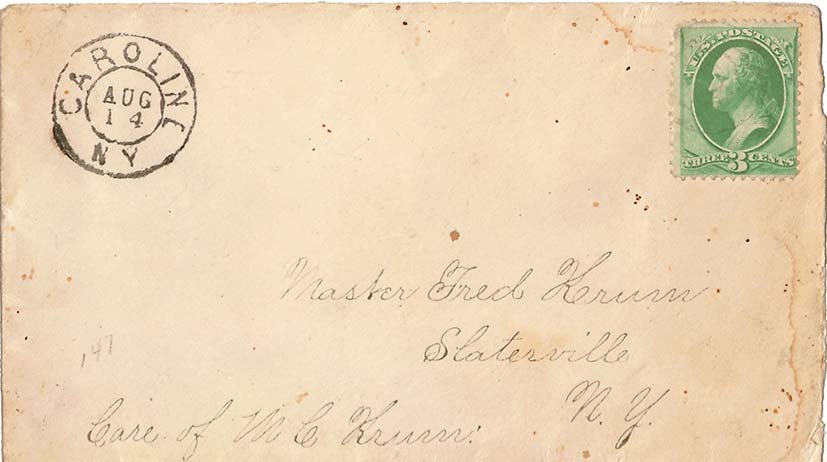 CAROLINE
AUG
14
NY
U.S. POSTAGE
THREE 3 CENTS
Master Fred Krum
Slaterville
N. Y.
,47
Care of M C Krum.